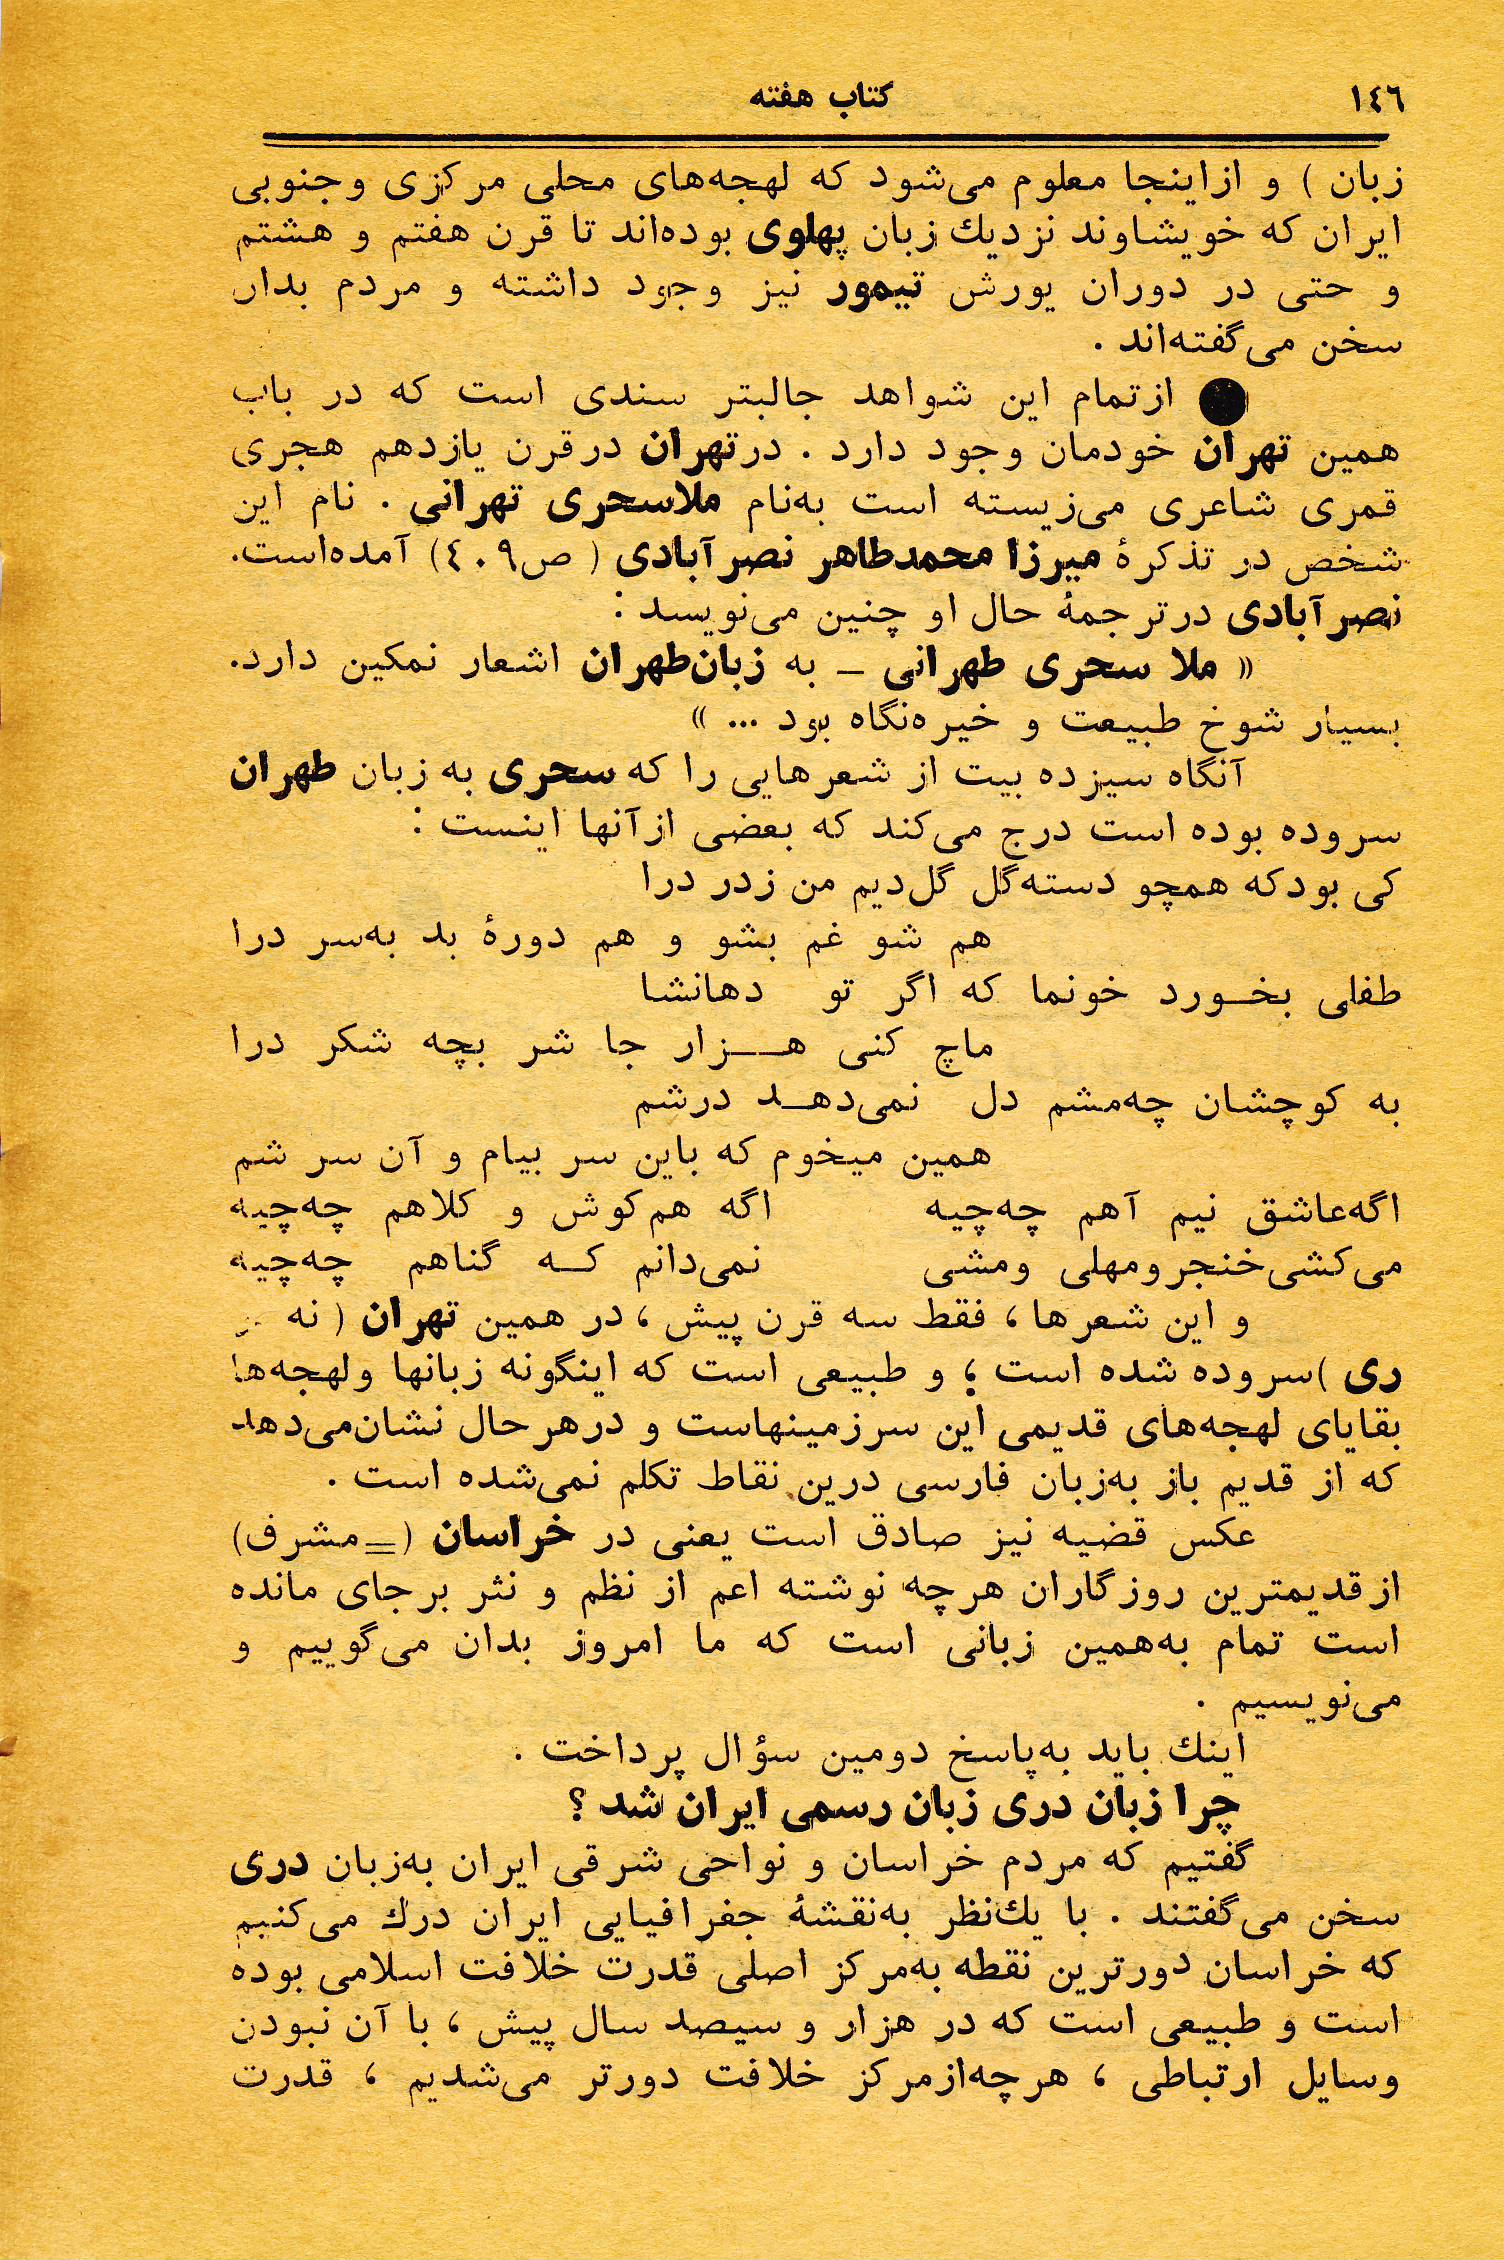 ١٤٦ كتاب هفته
زبان ) و ازاینجا معلوم می‌شود که لهجه‌های محلی مرکزی وجنوبی
ایران که خویشاوند نزدیك زبان پهلوی بوده‌اند تا قرن هفتم و هشتم
و حتی در دوران یورش تیمور نیز وجود داشته و مردم بدان
سخن می‌گفته‌اند .
● ازتمام این شواهد جالبتر سندی است که در باب
همین تهران خودمان وجود دارد . درتهران درقرن یازدهم هجری
قمری شاعری می‌زیسته است به‌نام ملاسحری تهرانی . نام این
شخص در تذکرهٔ میرزا محمدطاهر نصرآبادی ( ص٤٠٩) آمده‌است.
نصرآبادی درترجمهٔ حال او چنین می‌نویسد :
« ملا سحری طهرانی ــ به زبان‌طهران اشعار نمکین دارد.
بسیار شوخ طبیعت و خیره‌نگاه بود ... »
آنگاه سیزده بیت از شعرهایی را که سحری به زبان طهران
سروده بوده است درج می‌کند که بعضی ازآنها اینست :
کی بودکه همچو دسته‌گل گل‌دیم من زدر درا
هم شو غم بشو و هم دورهٔ بد به‌سر درا
طفلی بخـورد خونما که اگر تو دهانشا
ماچ کنی هــزار جا شر بچه شکر درا
به کوچشان چه‌مشم دل نمی‌دهـد درشم
همین میخوم که باین سر بیام و آن سر شم
اگه‌عاشق نیم آهم چه‌چیه اگه هم‌کوش و کلاهم چه‌چیه
می‌کشی‌خنجرومهلی ومشی نمی‌دانم کـه گناهم چه‌چیه
و این شعرها ، فقط سه قرن پیش ، در همین تهران ( نه
ری )سروده شده است ؛ و طبیعی است که اینگونه زبانها ولهجه‌ها
بقایای لهجه‌های قدیمی این سرزمینهاست و درهرحال نشان‌می‌دهد
که از قدیم باز به‌زبان فارسی درین نقاط تکلم نمی‌شده است .
عکس قضیه نیز صادق است یعنی در خراسان (= مشرف)
ازقدیمترین روزگاران هرچه نوشته اعم از نظم و نثر برجای مانده
است تمام به‌همین زبانی است که ما امروز بدان می‌گوییم و
می‌نویسیم .
اینك باید به‌پاسخ دومین سؤال پرداخت .
چرا زبان دری زبان رسمی ایران شد ؟
گفتیم که مردم خراسان و نواحی شرقی ایران به‌زبان دری
سخن می‌گفتند . با یك‌نظر به‌نقشهٔ جغرافیایی ایران درك می‌کنیم
که خراسان دورترین نقطه به‌مرکز اصلی قدرت خلافت اسلامی بوده
است و طبیعی است که در هزار و سیصد سال پیش ، با آن نبودن
وسایل ارتباطی ، هرچه‌ازمرکز خلافت دورتر می‌شدیم ، قدرت